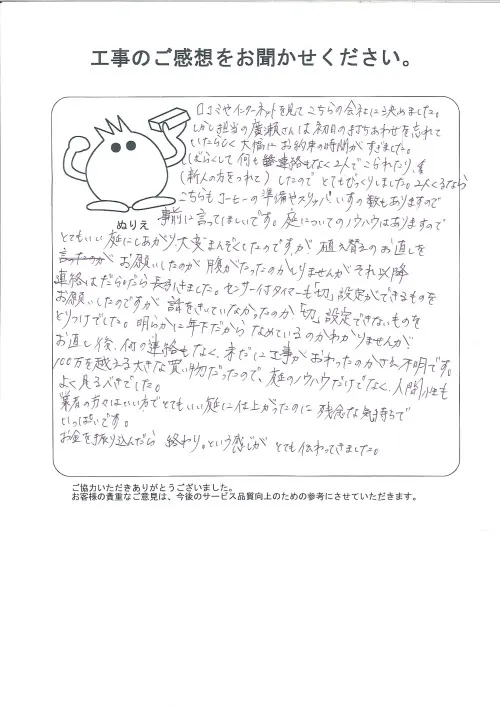 工事のご感想をお聞かせください。
口コミやインターネットを見てこちらの会社に決めました。
しかし担当の廣瀬さんは初日の打ちあわせを忘れて
いたらしく大幅にお約束の時間がすぎました。
しばらくして何も連絡もなく2人でこられたり、
(新人の方をつれて)したのでとてもびっくりしました。2人くるなら
こちらもコーヒーの準備やスリッパ、いすの数もありますので
事前に言ってほしいです。庭についてのノウハウはありますので
ぬりえ
とてもいい庭にしあがり大変まんぞくしたのですが、植え替えのお直しを
お願いしたのが腹がたったのかしりませんがそれ以降
連絡はだらだら長引きました。センサー付タイマーも「切」設定ができるものを
お願いしたのですが話をきいていなかったのか「切」設定できないものを
とりつけでした。明らかに年下だからなめているのかわかりませんが、
お直し後、何の連絡もなく、未だに工事がおわったのかさえ不明です。
100万を越える大きな買い物だったので、庭のノウハウだけでなく、人間性も
よく見るべきでした。
業者の方々はいい方でとてもいい庭に仕上がったのに残念な気持ちで
いっぱいです。
お金を振り込んだら終わり。という感じがとても伝わってきました。
ご協力いただきありがとうございました。
お客様の貴重なご意見は、今後のサービス品質向上のための参考にさせていただきます。